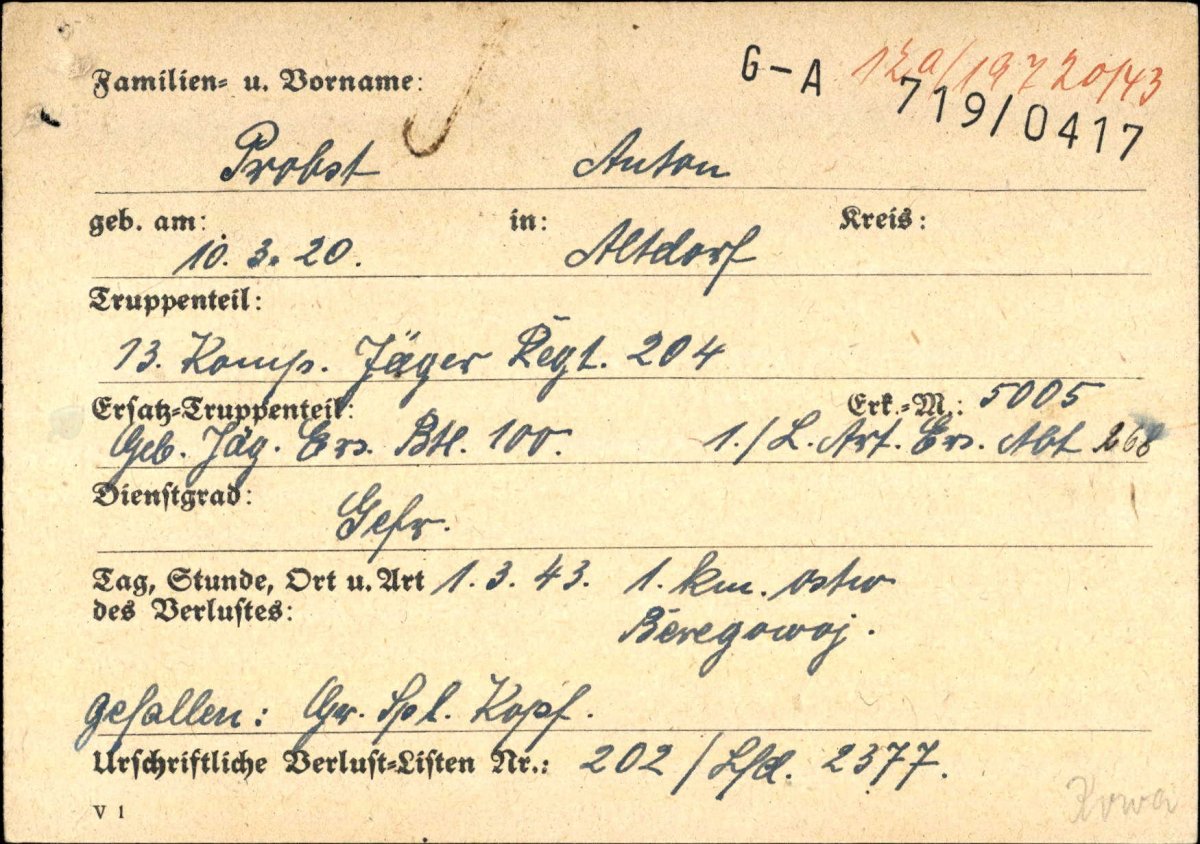 G-A
719/0417
Familien- u. Vorname:
Probst Anton
geb. am: in: Kreis:
10.3.20. Altdorf
Truppenteil:
13. Komp. Jäger Regt. 204
Ersatz-Truppenteil: Erk.-M.: 5005
Geb. Jäg. Ers. Btl. 100. 1./L. Art. Ers. Abt 268
Dienstgrad:
Gefr.
Tag, Stunde, Ort u. Art 1.3.43. 1. km. ostw
des Verlustes: Beregowoj.
gefallen: Gr. Spl. Kopf.
Urschriftliche Verlust-Listen Nr.: 202/Lfd. 2377.
V 1